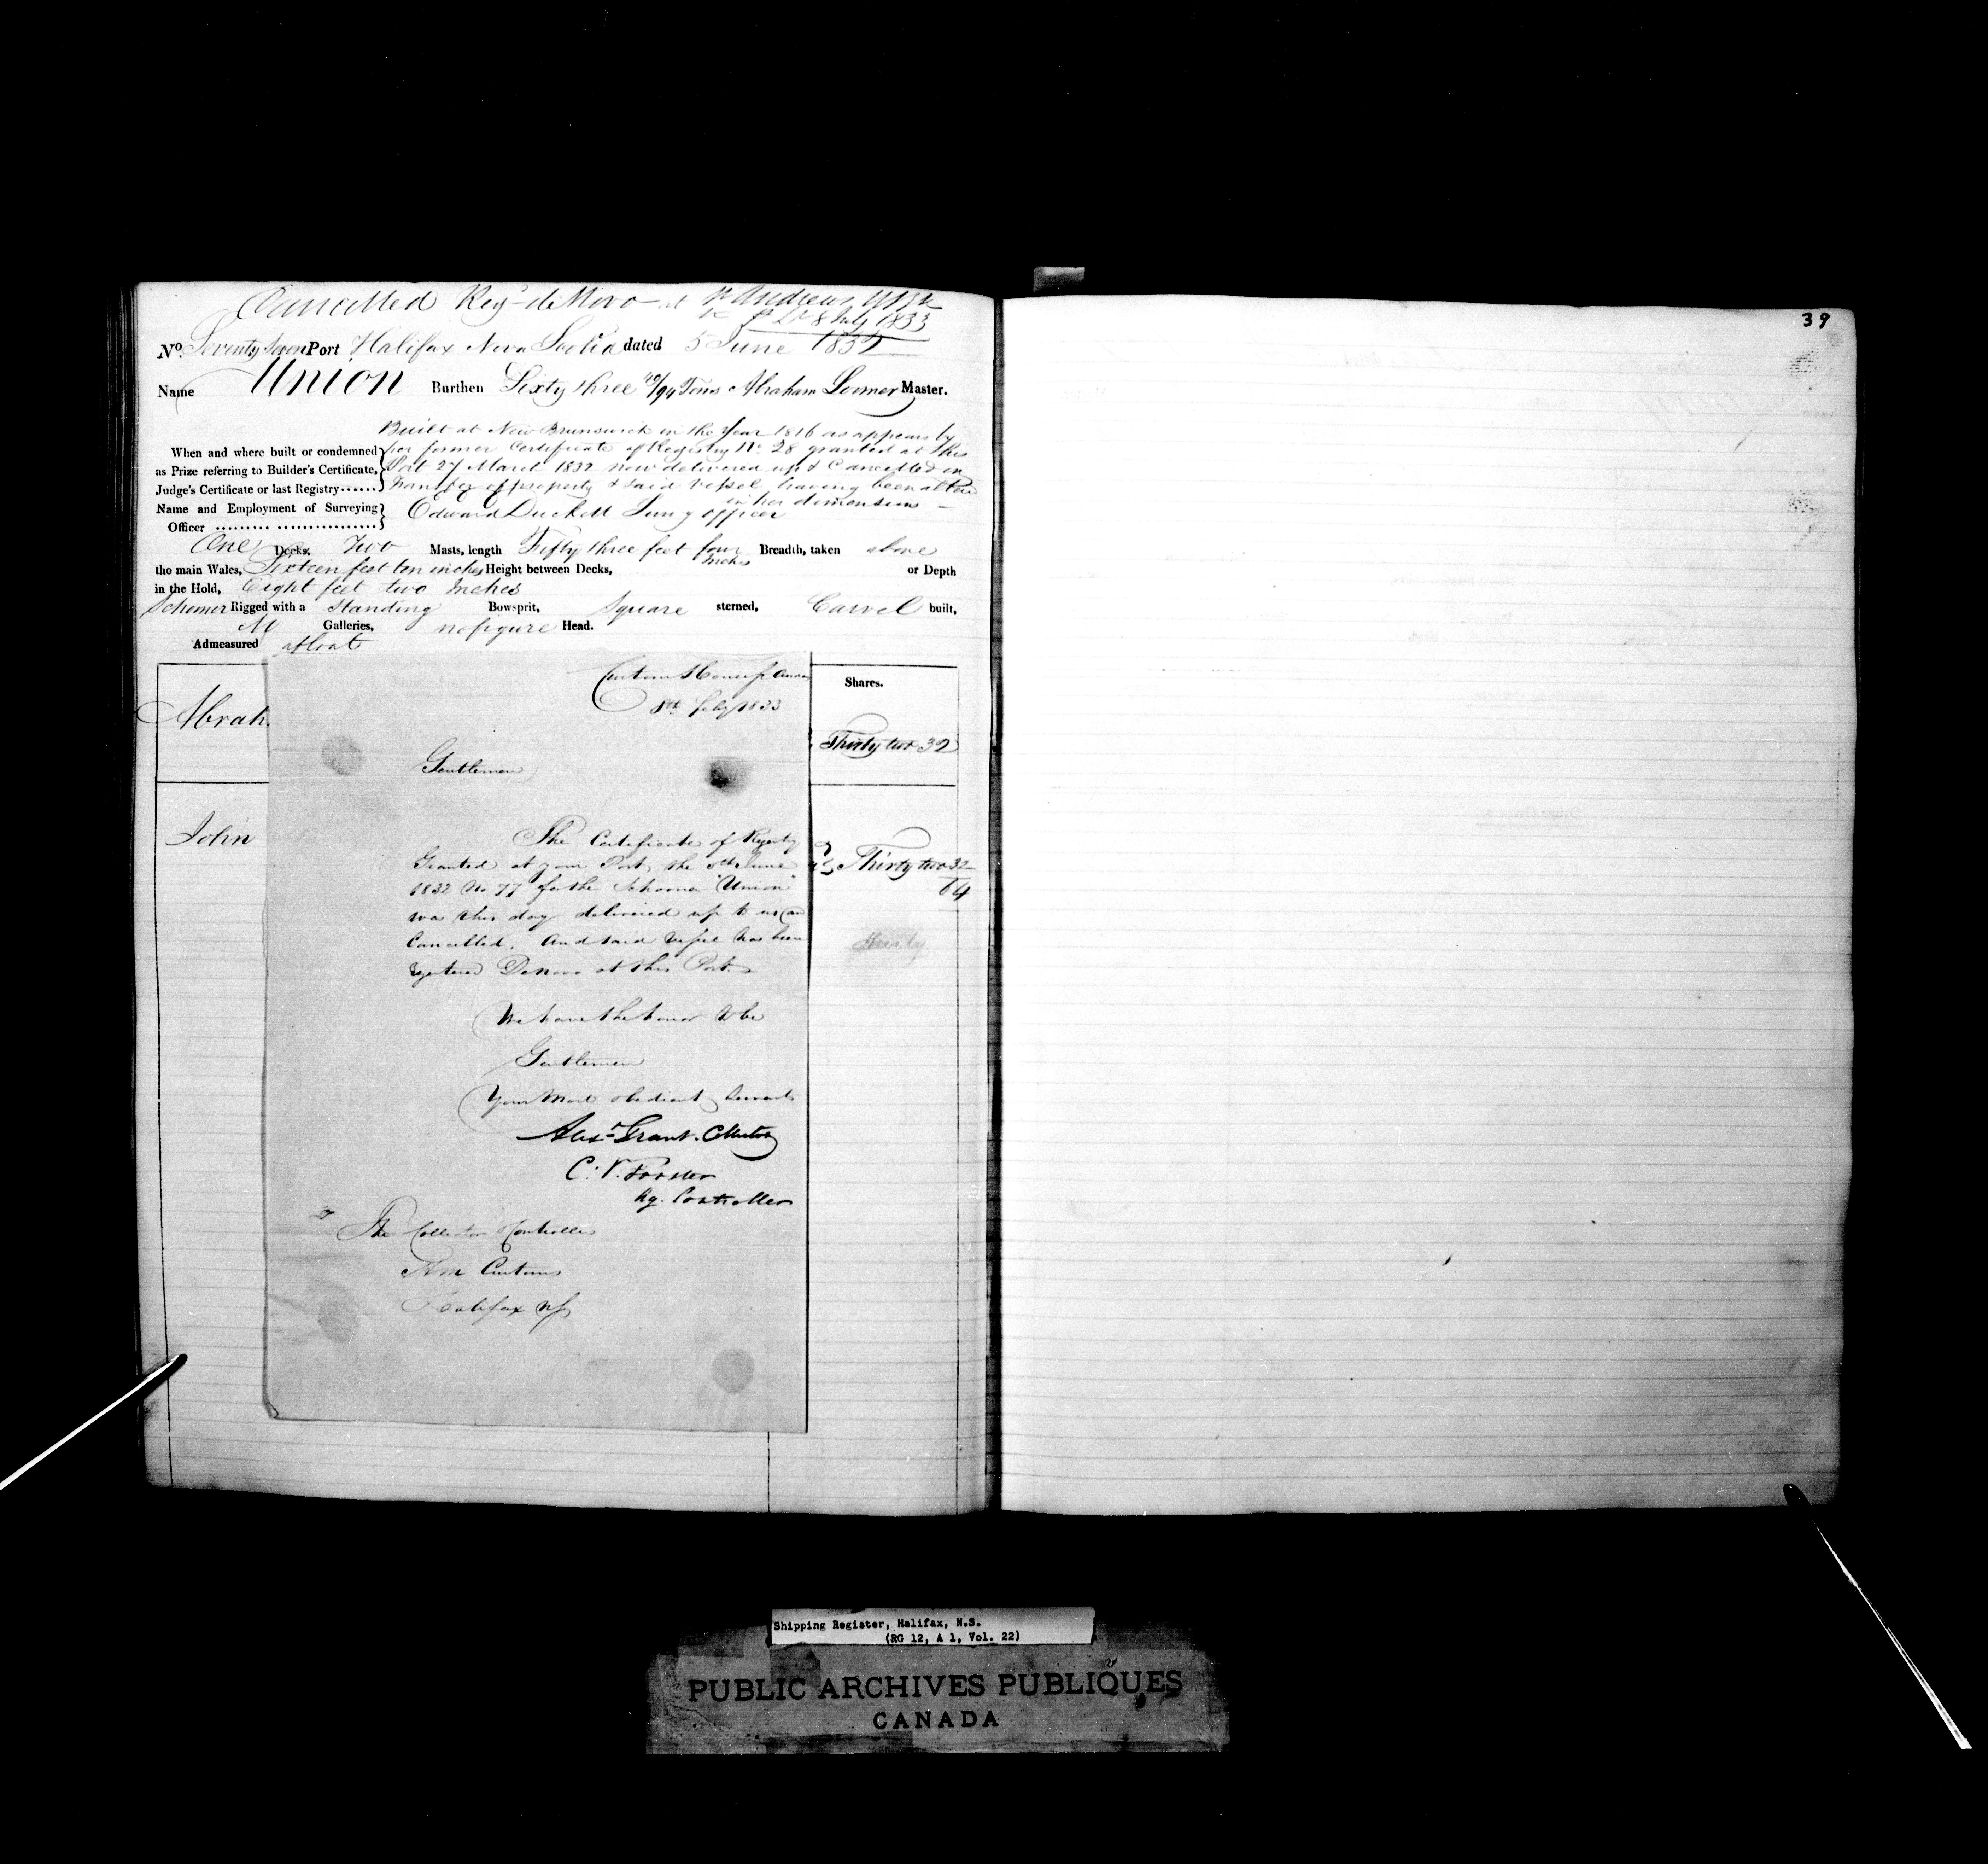 Cancelled Reg. de Novo at St Andrews
8 July 1833
No. Seventy Seven Port Halifax Nova Scotia dated 5 June 1832
Name Union Burthen Sixty three 40/94 Tons Abraham Master.
Built at New Brunswick in the Year 1816 as appears by
When and where built or condemned her former Certificate of Registry No. 28 granted at this
as Prize referring to Builder's Certificate, Port 27 March 1832 now delivered up & Cancelled on
Judge's Certificate or last Registry...... transfer of property & said vessel having been altered
in her dimensions –
Name and Employment of Surveying Edward Duckett Surv'g officer
Officer ......... ................
One Decks, Two Masts, length Fifty three feet four Inches Breadth, taken above
the main Wales, Sixteen feet ten inches Height between Decks, or Depth
in the Hold, Eight feet two Inches
Schooner Rigged with a Standing Bowsprit, Square sterned, Carvel built,
Galleries, no figure Head.
Admeasured afloat
Shares.
Abrah
Thirty two 32
John
Thirty two 32
64
Thirty
Custom House St Andrews
8th July 1833
Gentlemen
The Certificate of Registry
Granted at your Port, the 5th June
1832 No 77 for the Schooner "Union"
was this day delivered up to us and
Cancelled. And said Vessel has been
registered Denovo at this Port.
We have the honor to be
Gentlemen
Your Most obedient Servants
Alexr Grant. Collector
C. V. Forster
Ag. Controller
The Collector & Controller
HM Customs
Halifax NS
39
Shipping Register, Halifax, N.S.
(RG 12, A 1, Vol. 22)
PUBLIC ARCHIVES PUBLIQUES
CANADA